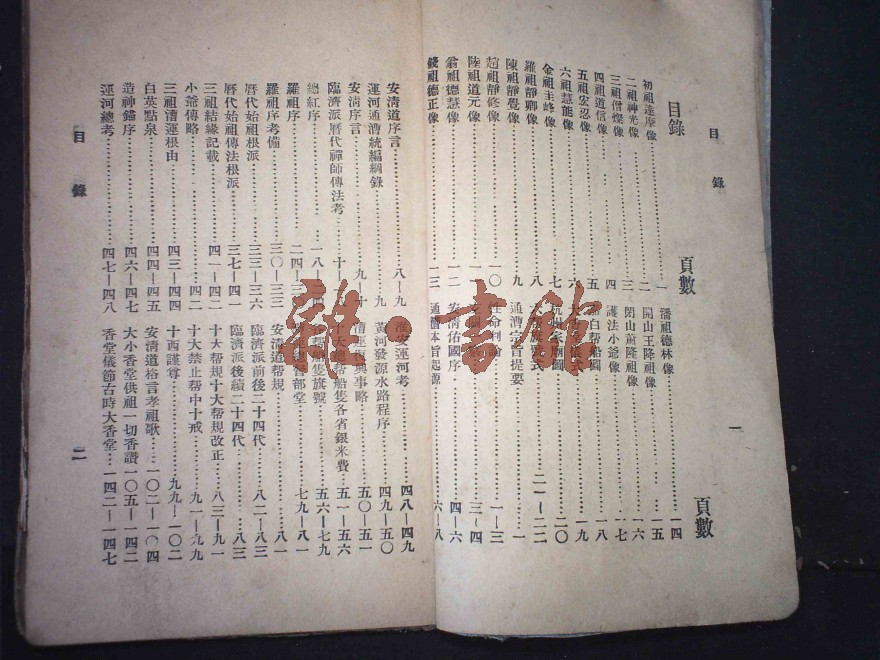 目錄
一
目錄
頁數
頁數
初祖達摩像 一
二祖神光像 二
三祖僧燦像 三
四祖道信像 四
五祖宏忍像 五
六祖慧能像 六
金祖圭峰像 七
羅祖靜卿像 八
陳祖靜覺像 九
趙祖靜修像 一〇
陸祖道元像
翁祖德慧像 一二
錢祖德正像 一三
潘祖德林像 一四
開山王降祖像 一五
閉山蕭隆祖像 一六
護法小爺像 一七
白帮船圖 一八
一九
杭州家廟圖 二〇
式
二一—二二
通漕宗旨提要 一
性命判論 一—三
三—四
安清佑國序 四—六
通漕本旨起源 六—八
安清道序言 八—九
運河通漕統編綱錄 九
安清序言 九—十
臨濟派曆代禪師傳法考 十—
總紅序 一八—
羅祖序 二四—
羅祖序考備 三〇—三三
曆代始祖根派 三三—三六
曆代始祖傳法根派 三七—四一
三祖結緣記載 四一—四二
小爺傳略 四二
三祖漕運根由 四三—四四
白英點泉 四四—四五
造神錨序 四六—四七
運河總考 四七—四八
淮安運河考 四八—四九
黃河發源水路程序 四九—五〇
事略 五〇—五一
十大帮船隻各省銀米費 五一—五六
帮船隻旗號 五六—七九
部堂 七九—八一
安清道帮規 八一
臨濟派前後二十四代 八二—八三
臨濟派後續二十四代 八三
十大帮規十大帮規改正 八三—九一
十大禁止帮中十戒 九一—九九
十西謹尊 九九—一〇二
安清道格言孝祖歌 一〇二—一〇四
大小香堂供祖一切香讚 一〇五—一四二
香堂儀節古時大香堂 一四二—一四七
目錄
二
雜·書館